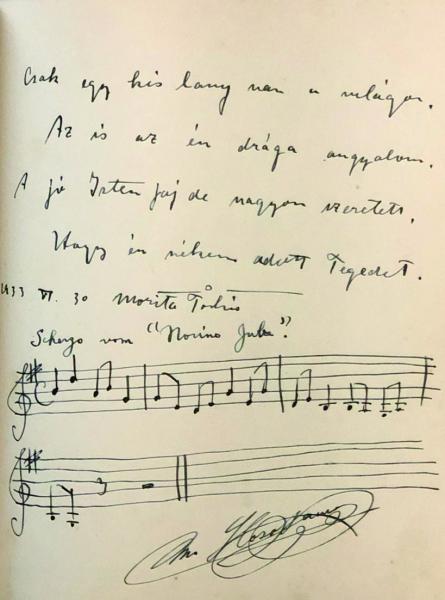 Csak egy kis lany van a világon.
Az is az én drága angyalom.
A jó Isten jaj de nagyon szeretett,
Hogy én nékem adott Tégedet.
1933 VI. 30 Morita
Scherzo vom "